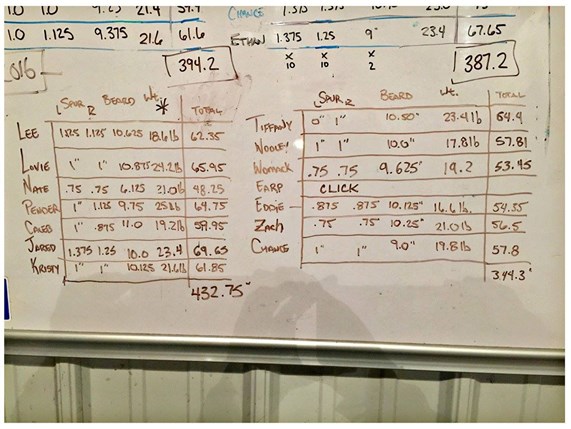 1.0 1.0 9.25 21.4 57.4
1.0 1.125 9.375 21.6 61.6
394.2
CHANCE 1.375 1.375
ETHAN 1.375 1.25 9" 23.4 67.65
x x x
10 10 2
387.2
L SPUR R BEARD Wt. * TOTAL
LEE 1.125 1.125 10.625 18.6lb 62.35
LOVIE 1" 1" 10.875 24.2lb 65.95
NATE .75 .75 6.125 21.0lb 48.25
PENDER 1" 1.125 9.75 64.75
CALEB 1" .875 11.0 19.2lb 59.95
JARED 1.375 1.25 10.0 23.4 69.65
KRISTY 1" 1" 10.125 21.6lb 61.85
432.75"
L SPUR R BEARD Wt. TOTAL
TIFFANY 0" 1" 10.50" 23.4lb 54.4
1" 1" 10.0" 17.81b 57.81
WOMACK .75 .75 9.625" 19.2 53.45
EARP CLICK
EDDIE .875 .875 10.125" 16.6lb. 54.35
ZACH .75 .75" 10.25" 21.0lb 56.5
CHANCE 1" 1" 9.0" 19.8lb 57.8